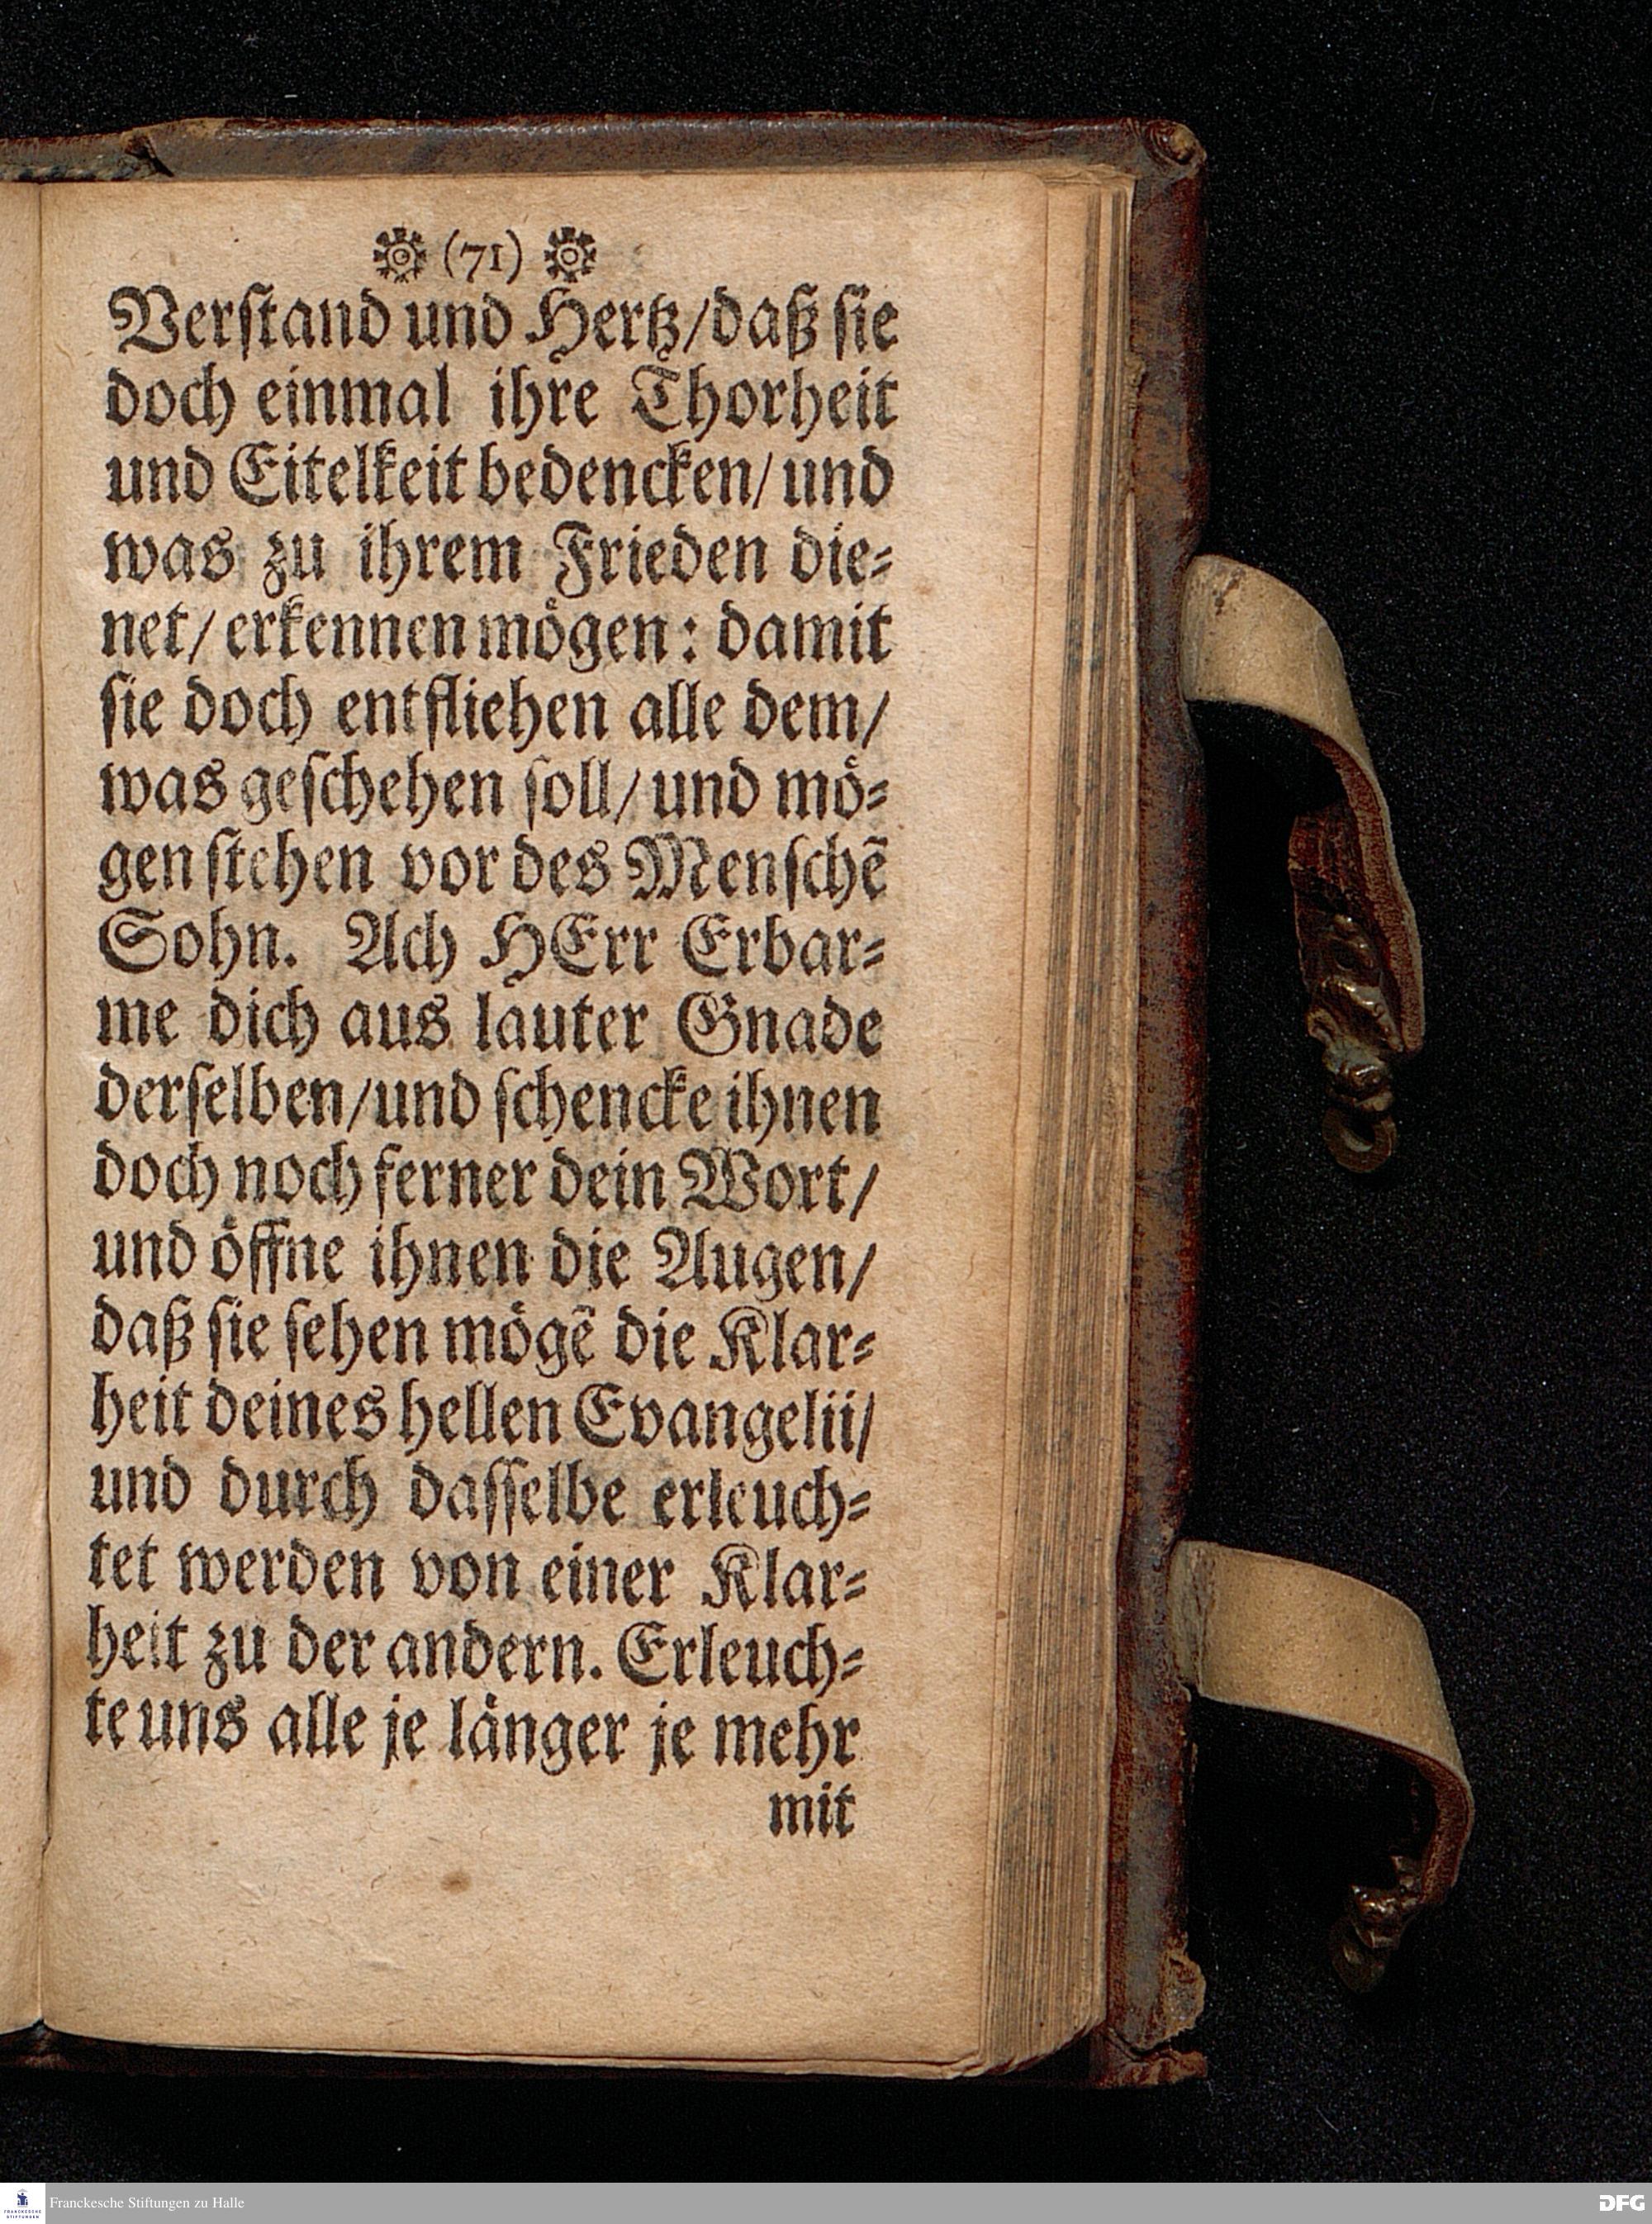 (71)
Verſtand und Hertz/daß ſie
doch einmal ihre Thorheit
und Eitelkeit bedencken/ und
was zu ihrem Frieden die⸗
net/ erkennen moͤgen: damit
ſie doch entfliehen alle dem/
was geſchehen ſoll/ und moͤ⸗
gen ſtehen vor des Menſchẽ
Sohn. Ach HErr Erbar⸗
me dich aus lauter Gnade
derſelben/und ſchencke ihnen
doch noch ferner dein Wort/
und oͤffne ihnen die Augen/
daß ſie ſehen moͤgẽ die Klar⸗
heit deines hellen Evangelii/
und durch daſſelbe erleuch⸗
tet werden von einer Klar⸗
heit zu der andern. Erleuch⸗
te uns alle je laͤnger je mehr
mit
Franckesche Stiftungen zu Halle
DFG